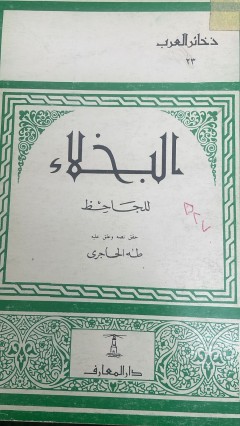 ذخائر العرب
٢٣
البخلاء
للجاحظ
حقق نصه وعلق عليه
طه الحاجري
دار المعارف